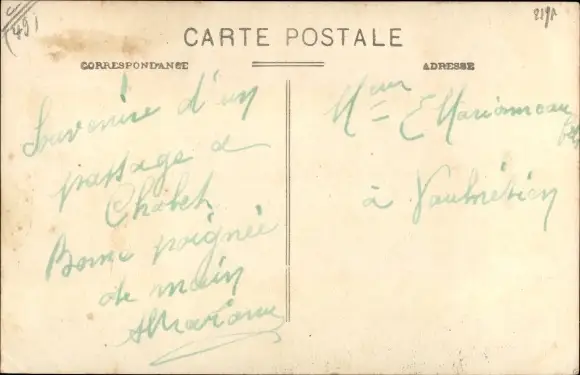 (49)
CARTE POSTALE
CORRESPONDANCE
ADRESSE
Souvenire d'un
passage a
Cholet
Bonne poignée
de main
Meur E Marionneau
à Vaulnétien